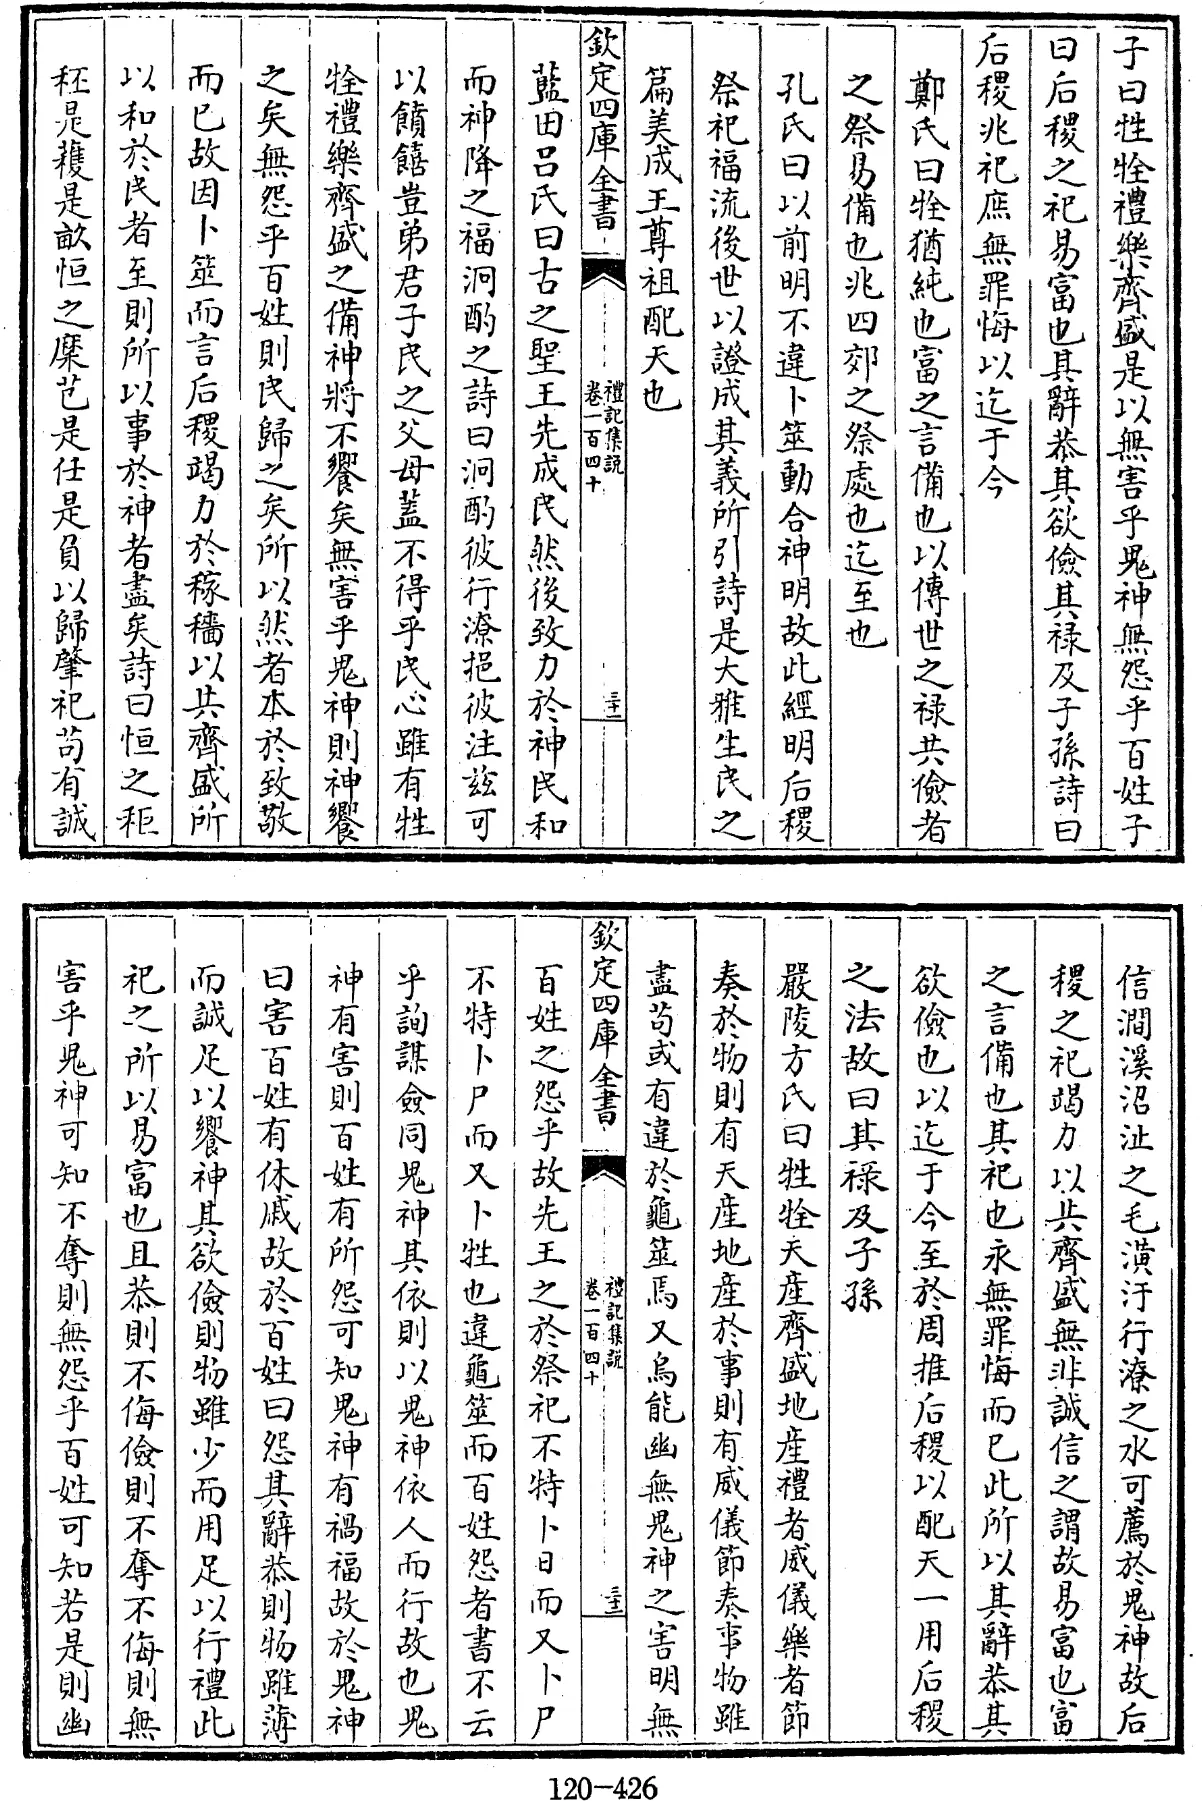 子曰牲牷禮樂齊盛是以無害乎鬼神無怨乎百姓子
曰后稷之祀易富也其辭恭其欲儉其禄及子孫詩曰
后稷兆祀庶無罪悔以迄于今
鄭氏曰牷猶純也富之言備也以傳世之禄共儉者
之祭易備也兆四郊之祭處也迄至也
孔氏曰以前明不違卜筮動合神明故此經明后稷
祭祀福流後世以證成其義所引詩是大雅生民之
篇美成王尊祖配天也
欽定四庫全書
禮記集説
卷一百四十
三十一
藍田呂氏曰古之聖王先成民然後致力於神民和
而神降之福泂酌之詩曰泂酌彼行潦挹彼注兹可
以饙饎豈弟君子民之父母蓋不得乎民心雖有牲
牷禮樂齊盛之備神將不饗矣無害乎鬼神則神饗
之矣無怨乎百姓則民歸之矣所以然者本於致敬
而已故因卜筮而言后稷竭力於稼穡以共齊盛所
以和於民者至則所以事於神者盡矣詩曰恒之秬
秠是穫是畝恒之穈芑是任是負以歸肇祀苟有誠
信澗溪沼沚之毛潢汙行潦之水可薦於鬼神故后
稷之祀竭力以共齊盛無非誠信之謂故易富也富
之言備也其祀也永無罪悔而已此所以其辭恭其
欲儉也以迄于今至於周推后稷以配天一用后稷
之法故曰其禄及子孫
嚴陵方氏曰牲牷天産齊盛地産禮者威儀樂者節
奏於物則有天産地産於事則有威儀節奏事物雖
盡苟或有違於龜筮焉又烏能幽無鬼神之害明無
欽定四庫全書
禮記集説
卷一百四十
三十二
百姓之怨乎故先王之於祭祀不特卜日而又卜尸
不特卜尸而又卜牲也違龜筮而百姓怨者書不云
乎詢謀僉同鬼神其依則以鬼神依人而行故也鬼
神有害則百姓有所怨可知鬼神有禍福故於鬼神
曰害百姓有休戚故於百姓曰怨其辭恭則物雖薄
而誠足以饗神其欲儉則物雖少而用足以行禮此
祀之所以易富也且恭則不侮儉則不奪不侮則無
害乎鬼神可知不奪則無怨乎百姓可知若是則幽
120-426